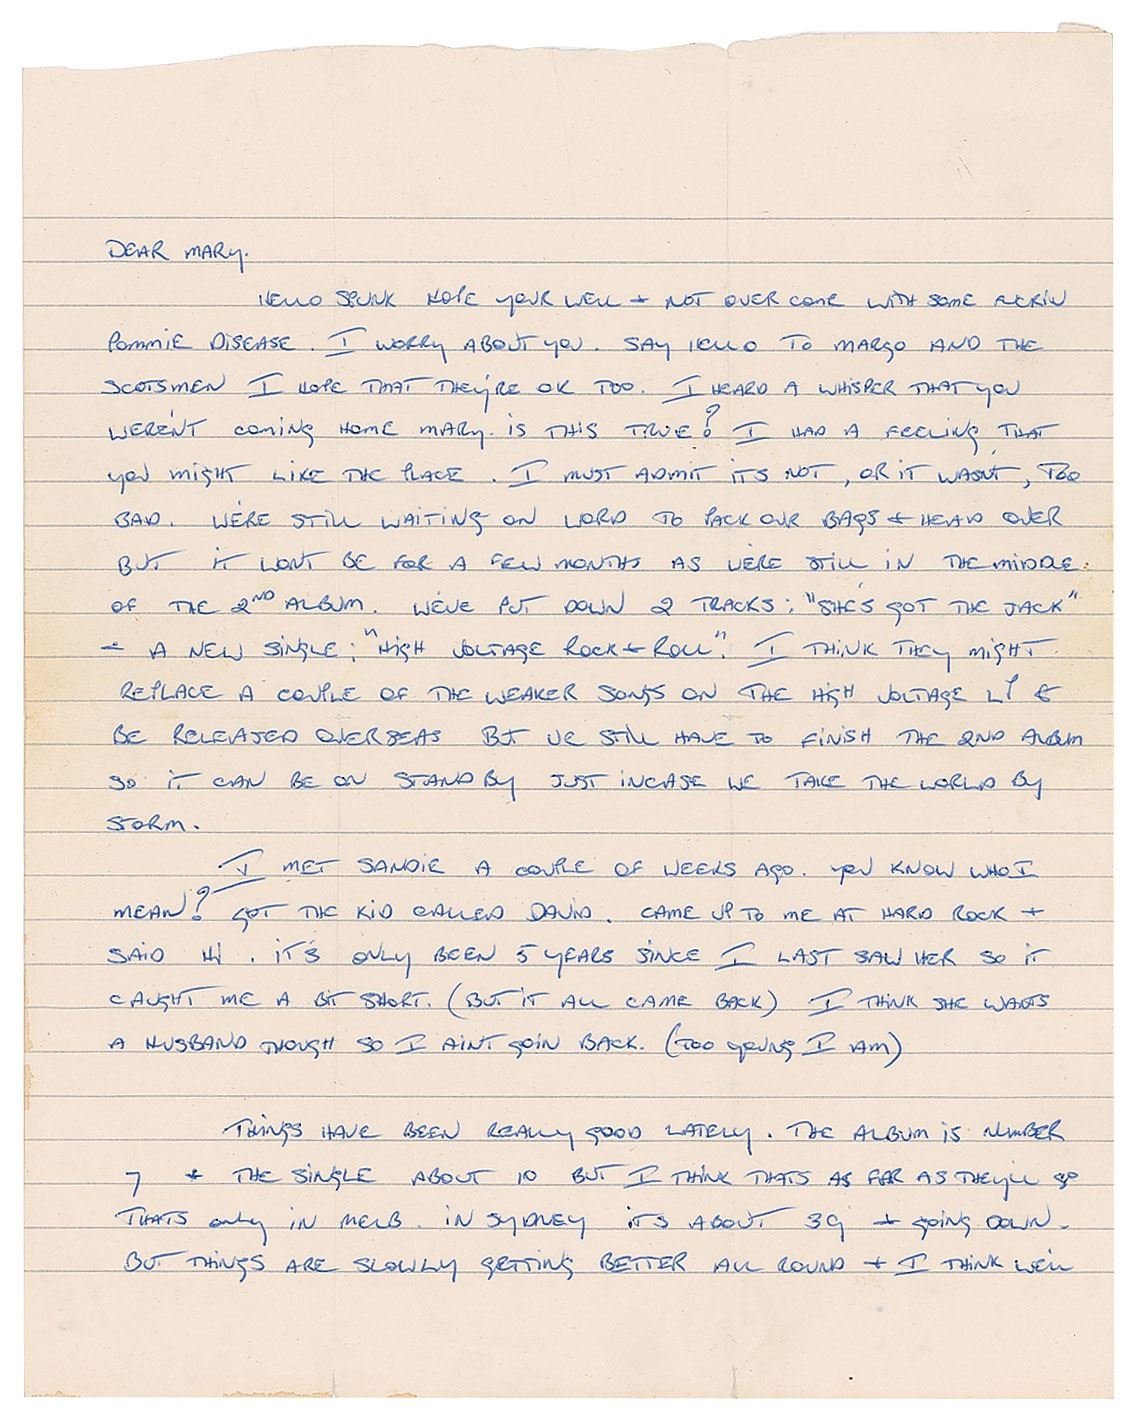 DEAR MARY.
HELLO SPUNK HOPE YOUR WELL + NOT OVER COME WITH SOME FUCKIN
POMMIE DISEASE. I WORRY ABOUT YOU. SAY HELLO TO MARGO AND THE
SCOTSMEN I HOPE THAT THEY'RE OK TOO. I HEARD A WHISPER THAT YOU
WEREN'T COMING HOME MARY. IS THIS TRUE? I HAD A FEELING THAT
YOU MIGHT LIKE THE PLACE. I MUST ADMIT IT'S NOT, OR IT WASN'T, TOO
BAD. WE'RE STILL WAITING ON WORD TO PACK OUR BAGS + HEAD OVER
BUT IT WONT BE FOR A FEW MONTHS AS WE'RE STILL IN THE MIDDLE
OF THE 2ND ALBUM. WE'VE PUT DOWN 2 TRACKS: "SHE'S GOT THE JACK"
+ A NEW SINGLE: "HIGH VOLTAGE ROCK + ROLL". I THINK THEY MIGHT
REPLACE A COUPLE OF THE WEAKER SONGS ON THE HIGH VOLTAGE LP &
BE RELEASED OVERSEAS BUT WE STILL HAVE TO FINISH THE 2ND ALBUM
SO IT CAN BE ON STAND BY JUST INCASE WE TAKE THE WORLD BY
STORM.
I MET SANDIE A COUPLE OF WEEKS AGO. YOU KNOW WHO I
MEAN? GOT THE KID CALLED DAVID. CAME UP TO ME AT HARD ROCK +
SAID HI. IT'S ONLY BEEN 5 YEARS SINCE I LAST SAW HER SO IT
CAUGHT ME A BIT SHORT. (BUT IT ALL CAME BACK) I THINK SHE WANTS
A HUSBAND THOUGH SO I AINT GOIN BACK. (TOO YOUNG I AM)
THINGS HAVE BEEN REALLY GOOD LATELY. THE ALBUM IS NUMBER
7 + THE SINGLE ABOUT 10 BUT I THINK THATS AS FAR AS THEY'LL GO
THATS ONLY IN MELB. IN SYDNEY IT'S ABOUT 39 + GOING DOWN.
BUT THINGS ARE SLOWLY GETTING BETTER ALL ROUND + I THINK WE'LL